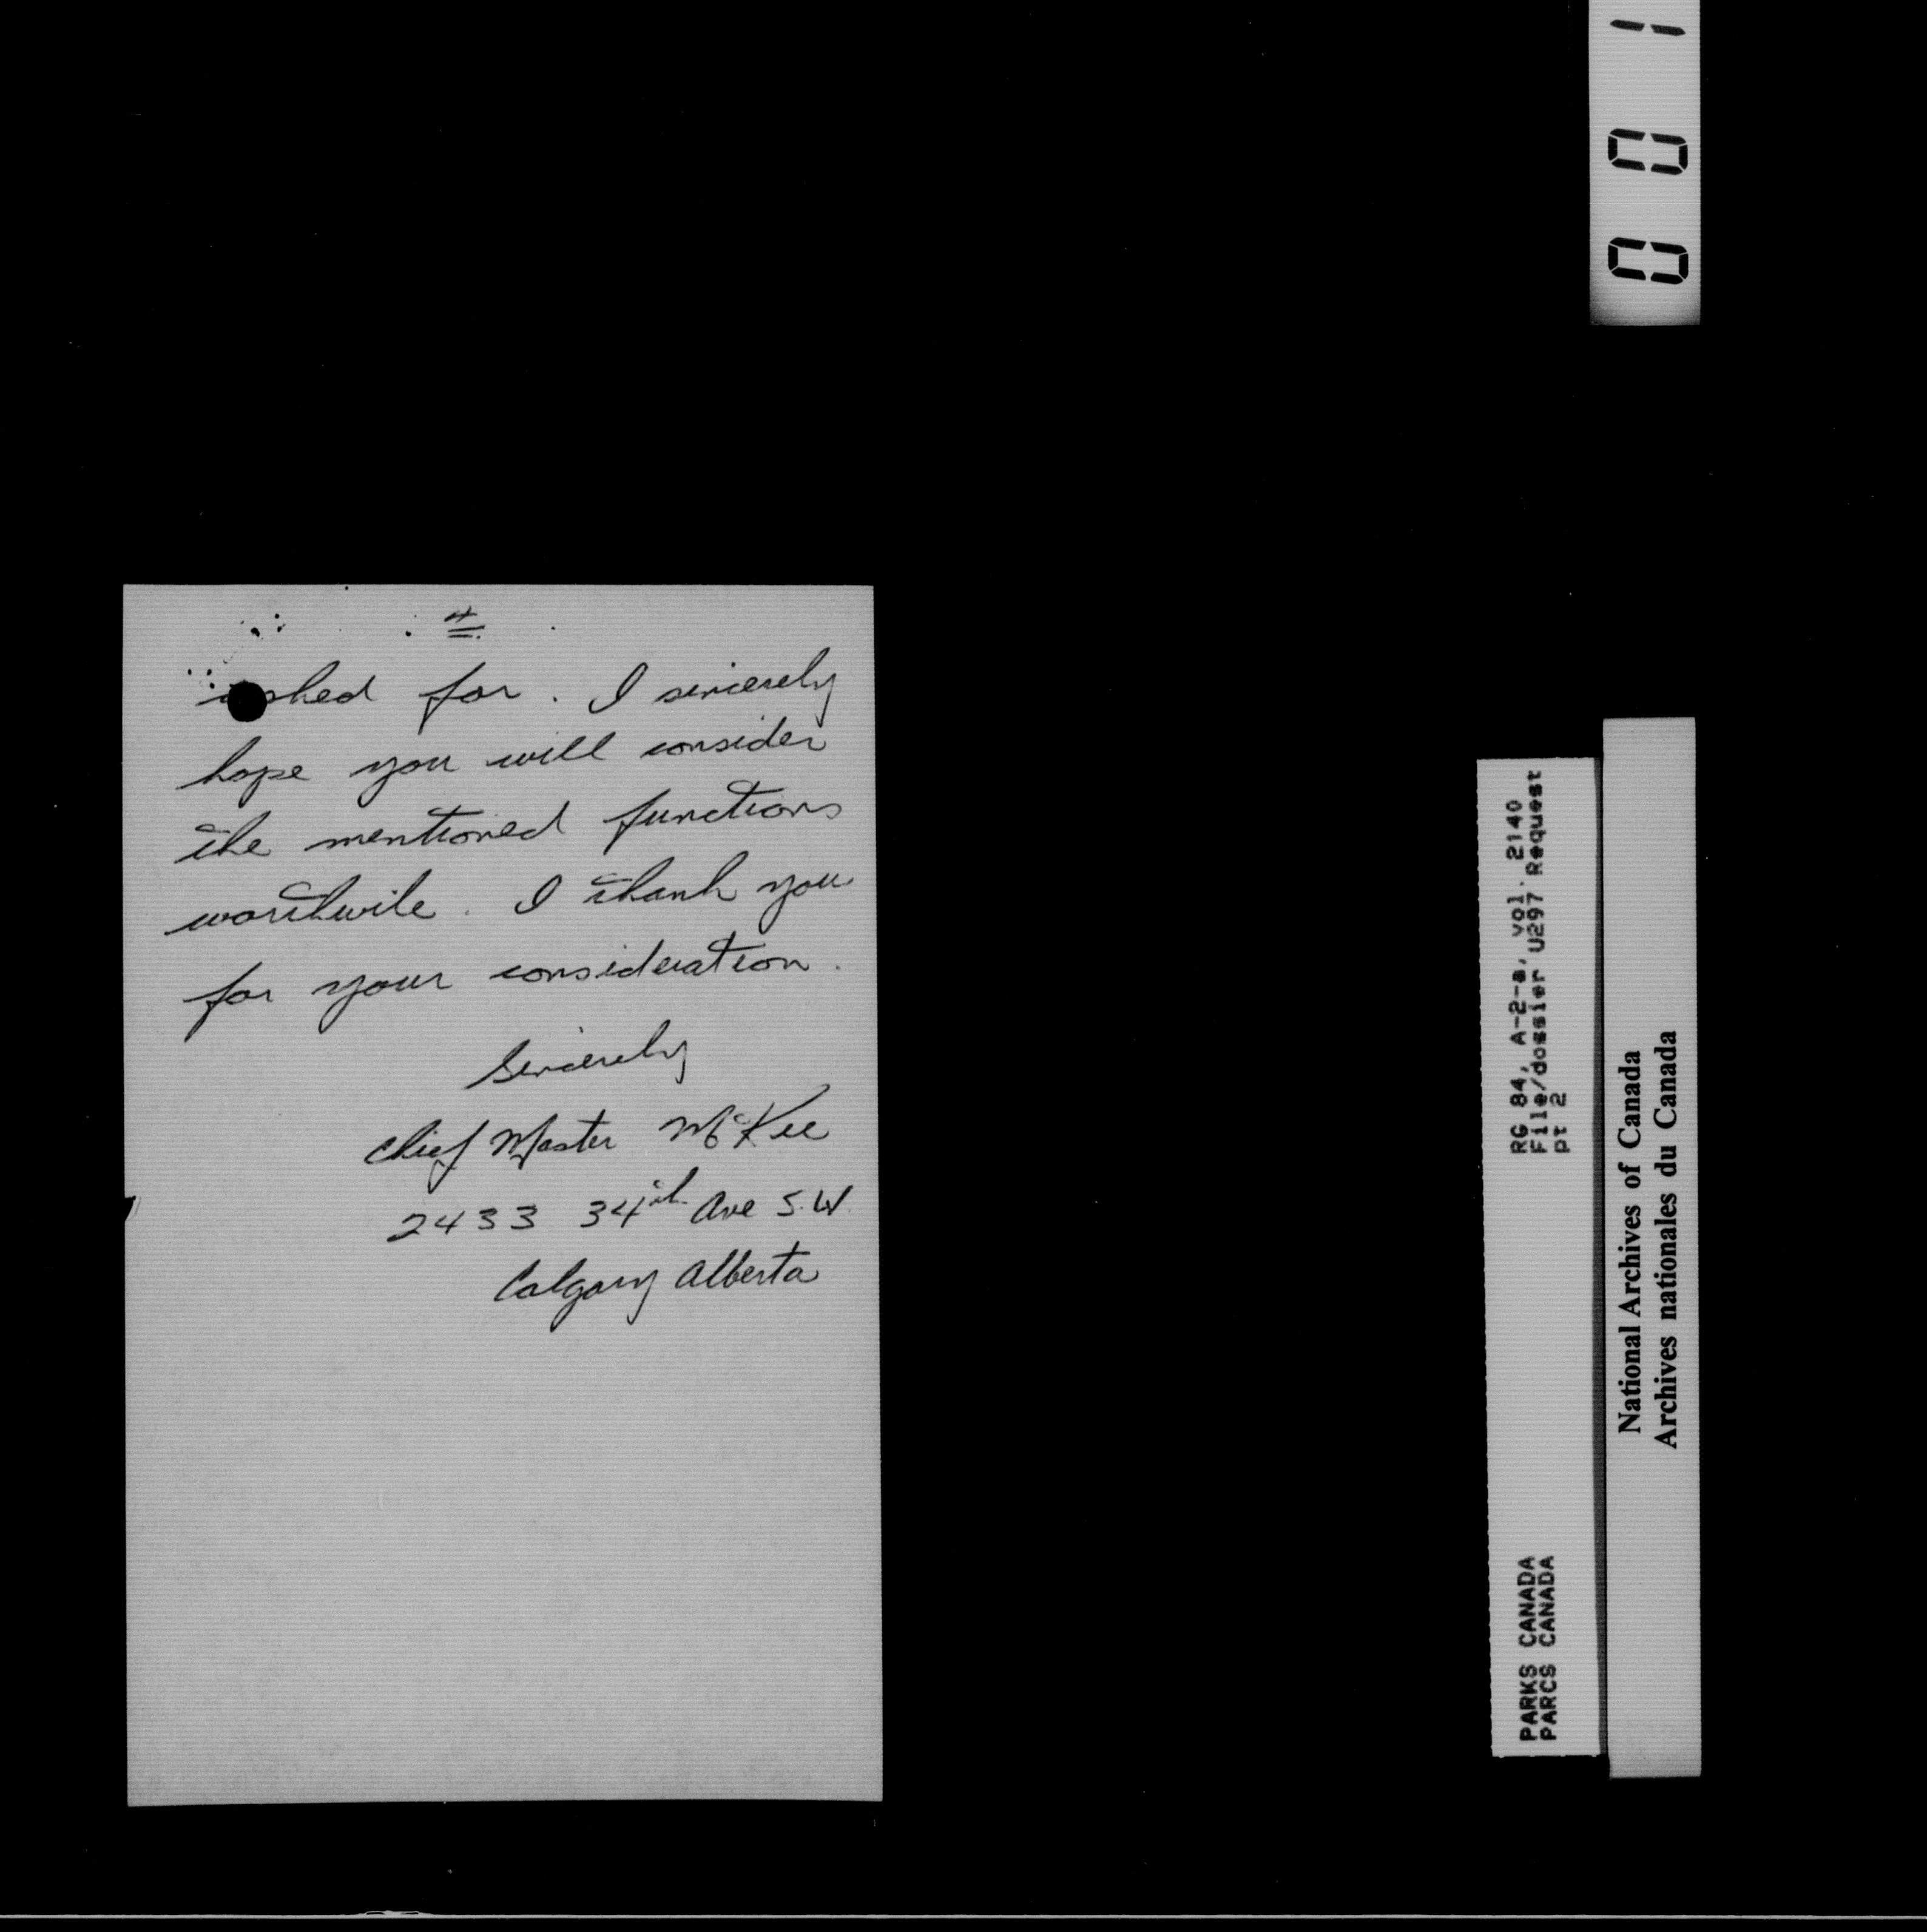 4
asked for. I sincerely
hope you will consider
the mentioned functions
worthwile. I thank you
for your consideration.
Sincerely
Chief Master McKee
2433 34th Ave S.W.
Calgary Alberta
001
RG 84, A-2-a, vol. 2140
File/dossier U297 Request
pt 2
PARKS CANADA
PARCS CANADA
National Archives of Canada
Archives nationales du Canada